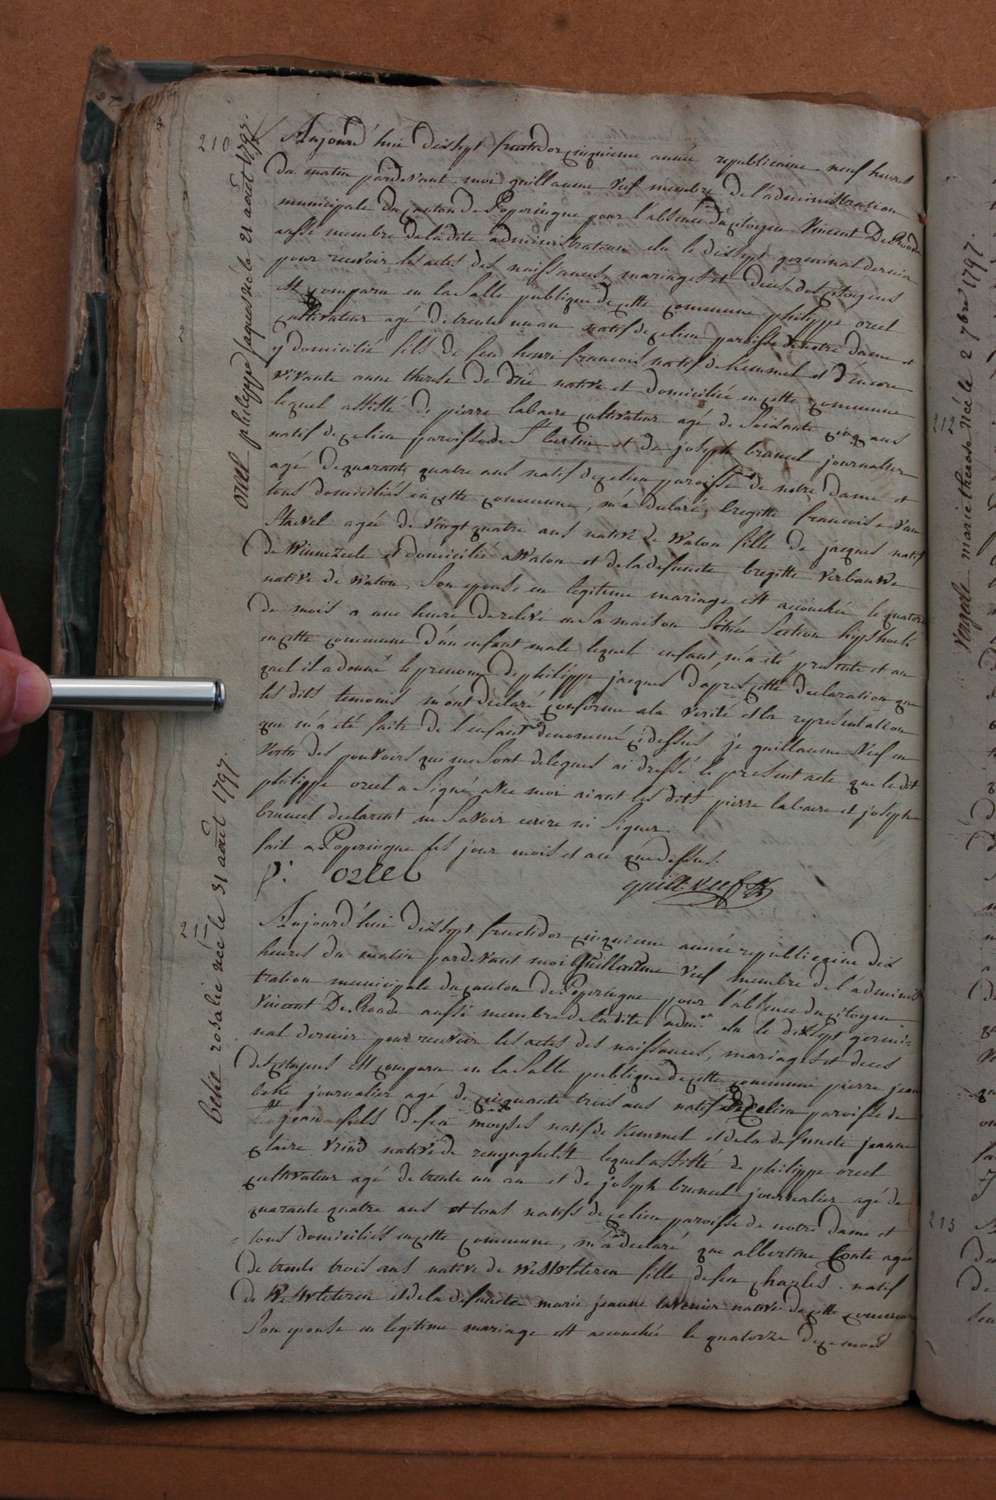 210
orcel philippe jacques né le 21 août 1797.
Aujourd'hui dixsept fructidor cinquieme année republicaine neuf heures
du matin pardevant moi guillaume Vuef membre de l'administration
municipale du canton de Poperingue pour l'absence du citoyen Vincent DeRoode
aussi membre de la dite administration elu le dixsept germinal dernier
pour recevoir les actes des naissances, mariages et deces des citoyens
est comparu en la Salle publique de cette commune philippe orcel
cultivateur agé de trente un an natif de ce lieu paroisse de notre dame et
y domicilié fils de feu henri francois natif de Kemmel et d'encore
vivante anne therese de native et domiciliée en cette commune
lequel assisté de pierre labaere cultivateur agé de Soixante cinq ans
natif de ce lieu paroisse de St bertin et de joseph bruneel journalier
agé de quarante quatre ans natif de ce lieu paroisse de notre dame et
tous domiciliés en cette commune, m'a declaré, brigitte francoise van
Stavel agée de vingt quatre ans native de Watou fille de jacques natif
de Winnezeele et domicilié a Watou et de la defuncte brigitte verbauwe
native de Watou, Son epouse en legitime mariage est accouchée le quatorze
de mois a une heure de relevé en Sa maison Sitée Section
en cette commune d'un enfant male lequel enfant m'a été presenté et au
quel il a donné le prenom de philippe jacques d'apres cette declaration que
les dits temoins m'ont declaré conforme a la verité et la représentation
qui m'a été faite de l'enfant denommé ci dessus je guillaume Vuef en
vertu des pouvoirs qui me sont delegués ai dressé le present acte que le dit
philippe orcel a Signé avec moi aiant les dits pierre labaere et joseph
bruneel declarent ne Savoir ecrire ni Signer.
fait a Poperingue les jour mois et an que dessus.
p: orcel guill. Vuef
211
beke rosalie née le 31 août 1797
Aujourd'hui dixsept fructidor cinquieme année republicaine dix
heures du matin pardevant moi Guillaume Vuef membre de l'adminis
tration municipale du canton de Poperingue pour l'absence du citoyen
Vincent DeRoode aussi membre de la dite admon elu le dixsept germi:
nal dernier pour recevoir les actes des naissances, mariages et deces
des citoyens est comparu en la Salle publique de cette commune pierre jean
beke journalier agé de cinquante trois ans natif de ce lieu paroisse de
St jean fils de feu moyses natif de Kemmel et de la defuncte jeanne
claire vind native de renynghelst lequel assisté de philippe orcel
cultivateur agé de trente un an et de joseph bruneel journalier agé de
quarante quatre ans et tous natifs de ce lieu paroisse de notre dame et
tous domiciliés en cette commune, m'a declaré que albertine Conte agée
de trente trois ans native de Westvleteren fille de feu Charles natif
de Westvleteren et de la defuncte marie jeanne tavernier native de cette commune
Son epouse en legitime mariage est accouchée le quatorze de ce mois
212
marie therese née le 2 7bre 1797.
213